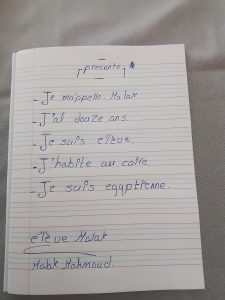 présente
- Je m'appelle Malak
- J'ai douze ans.
- Je suis élève.
- J'habite au caire.
- Je suis egyptienne.
elève Malak
Malak Mahmoud.